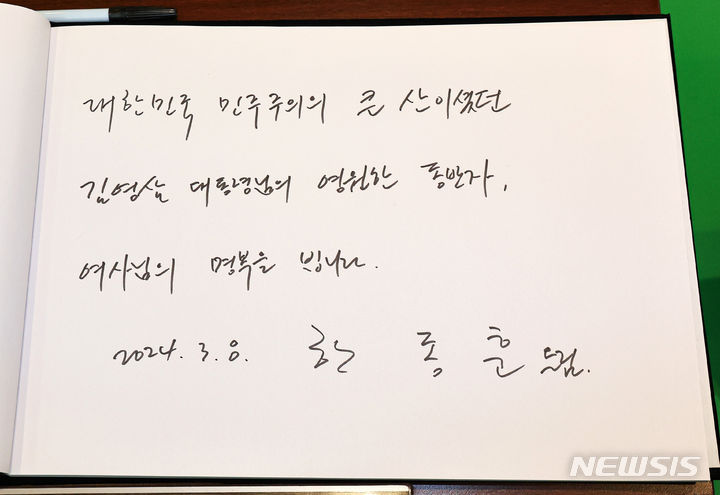 대한민국 민주주의의 큰 산이셨던
김영삼 대통령님의 영원한 동반자,
여사님의 명복을 빕니다.
2024. 3. 8. 한 동 훈 드림.
NEWSIS